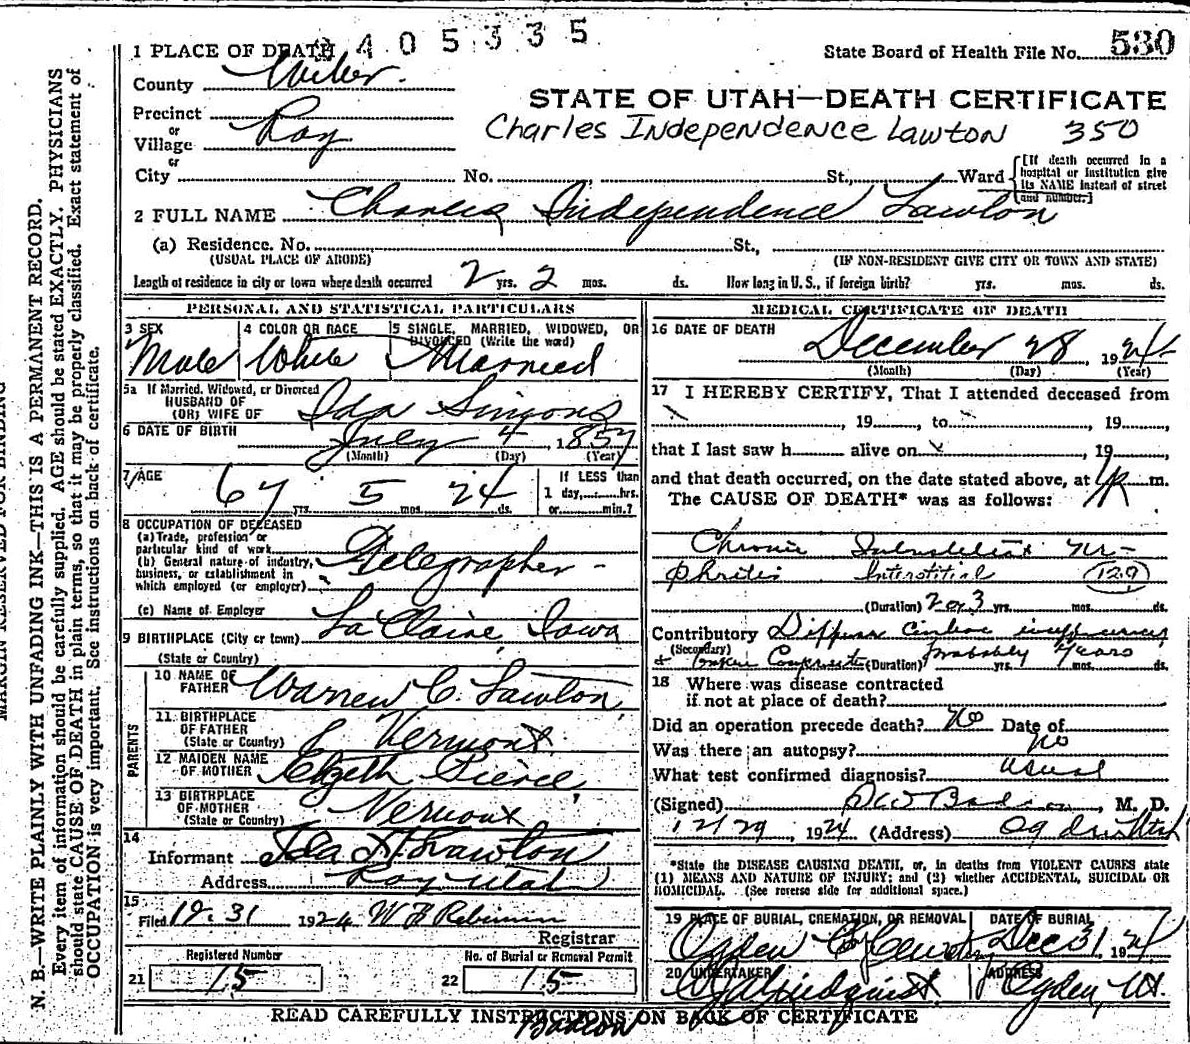 2405335
1 PLACE OF DEATH
State Board of Health File No. 530
County Weber
STATE OF UTAH—DEATH CERTIFICATE
Precinct
or
Village Roy
Charles Independence Lawton 350
or
City No. St., Ward
[If death occurred in a hospital or institution give its NAME instead of street and number.]
2 FULL NAME Charles Independence Lawton
(a) Residence. No. St.,
(USUAL PLACE OF ABODE) (IF NON-RESIDENT GIVE CITY OR TOWN AND STATE)
Length of residence in city or town where death occurred 2 yrs. 2 mos. ds. How long in U. S., if foreign birth? yrs. mos. ds.
PERSONAL AND STATISTICAL PARTICULARS
3 SEX 4 COLOR OR RACE 5 SINGLE, MARRIED, WIDOWED, OR
DIVORCED (Write the word)
Male White Married
5a If Married, Widowed, or Divorced
HUSBAND OF
(OR) WIFE OF Ida Simons
6 DATE OF BIRTH July 4, 1857
(Month) (Day) (Year)
7 AGE If LESS than
67 yrs. 5 mos. 24 ds. 1 day, hrs.
or min.?
8 OCCUPATION OF DECEASED
(a) Trade, profession or
particular kind of work
(b) General nature of industry,
business, or establishment in
which employed (or employer)
Telegrapher
(c) Name of Employer
9 BIRTHPLACE (City or town) La Claire, Iowa
(State or Country)
PARENTS
10 NAME OF
FATHER Warren C. Lawton
11 BIRTHPLACE
OF FATHER
(State or Country) Vermont
12 MAIDEN NAME
OF MOTHER Elizth Pierce
13 BIRTHPLACE
OF MOTHER
(State or Country) Vermont
14
Informant Ida H Lawton
Address Roy Utah
15
Filed 12.31 1924 W Robinson
Registrar
Registered Number No. of Burial or Removal Permit
21 15 22 15
MEDICAL CERTIFICATE OF DEATH
16 DATE OF DEATH December 28 1924
(Month) (Day) (Year)
17 I HEREBY CERTIFY, That I attended deceased from
, 19 , to , 19 ,
that I last saw h alive on , 19 ,
and that death occurred, on the date stated above, at m.
The CAUSE OF DEATH* was as follows:
Chronic Interstitial Ne-
phritis Interstitial 129
(Duration) 2 or 3 yrs. mos. ds.
Contributory
(Secondary)
(Duration) Probably years yrs. mos. ds.
18 Where was disease contracted
if not at place of death?
Did an operation precede death? No Date of
Was there an autopsy? no
What test confirmed diagnosis? usual
(Signed) , M. D.
12/29, 1924 (Address) Ogden Utah
*State the DISEASE CAUSING DEATH, or, in deaths from VIOLENT CAUSES state
(1) MEANS AND NATURE OF INJURY; and (2) whether ACCIDENTAL, SUICIDAL OR
HOMICIDAL. (See reverse side for additional space.)
19 PLACE OF BURIAL, CREMATION, OR REMOVAL DATE OF BURIAL
Ogden City Cemetery Dec 31, 1924
20 UNDERTAKER ADDRESS
Lindquist Ogden, Ut.
READ CAREFULLY INSTRUCTIONS ON BACK OF CERTIFICATE
MARGIN RESERVED FOR BINDING
N. B.—WRITE PLAINLY WITH UNFADING INK—THIS IS A PERMANENT RECORD.
Every item of information should be carefully supplied. AGE should be stated EXACTLY. PHYSICIANS
should state CAUSE OF DEATH in plain terms, so that it may be properly classified. Exact statement of
OCCUPATION is very important. See instructions on back of certificate.